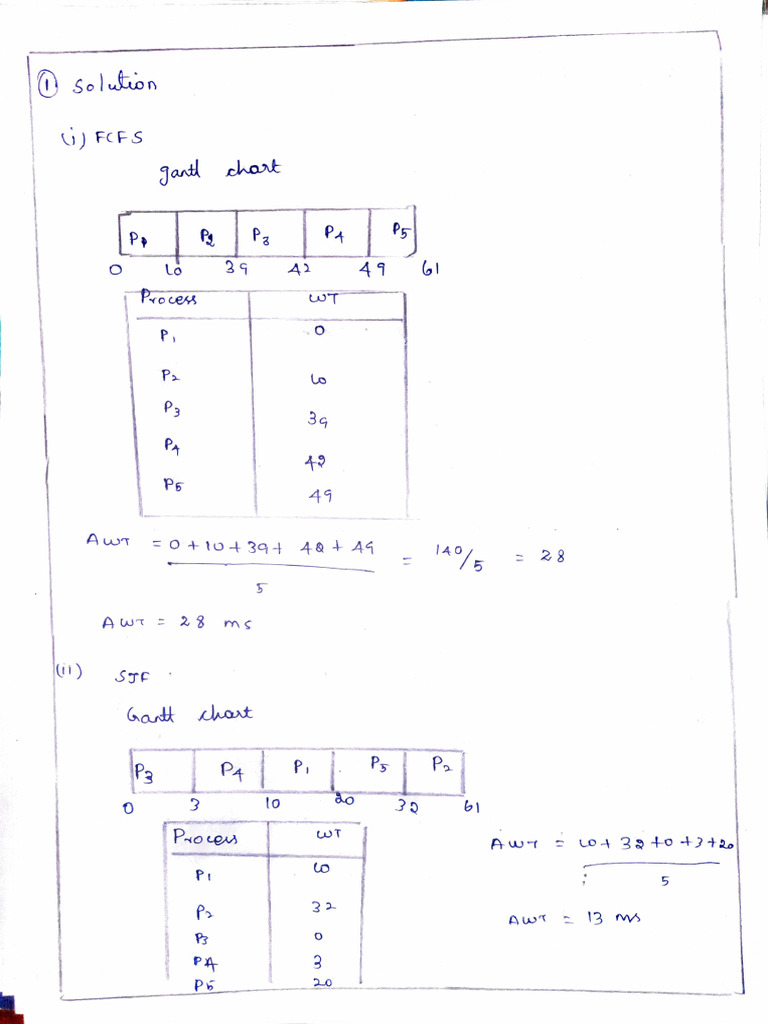 ① Solution
(i) FCFS
gantt chart
P1 P2 P3 P4 P5
0 10 39 42 49 61
Process WT
P1 0
P2 10
P3 39
P4 42
P5 49
AWT = 0 + 10 + 39 + 42 + 49 = 140/5 = 28
5
AWT = 28 ms
(ii) SJF
Gantt chart
P3 P4 P1 P5 P2
0 3 10 20 32 61
Process WT
P1 10
P2 32
P3 0
P4 3
P5 20
AWT = 10 + 32 + 0 + 3 + 20
5
AWT = 13 ms